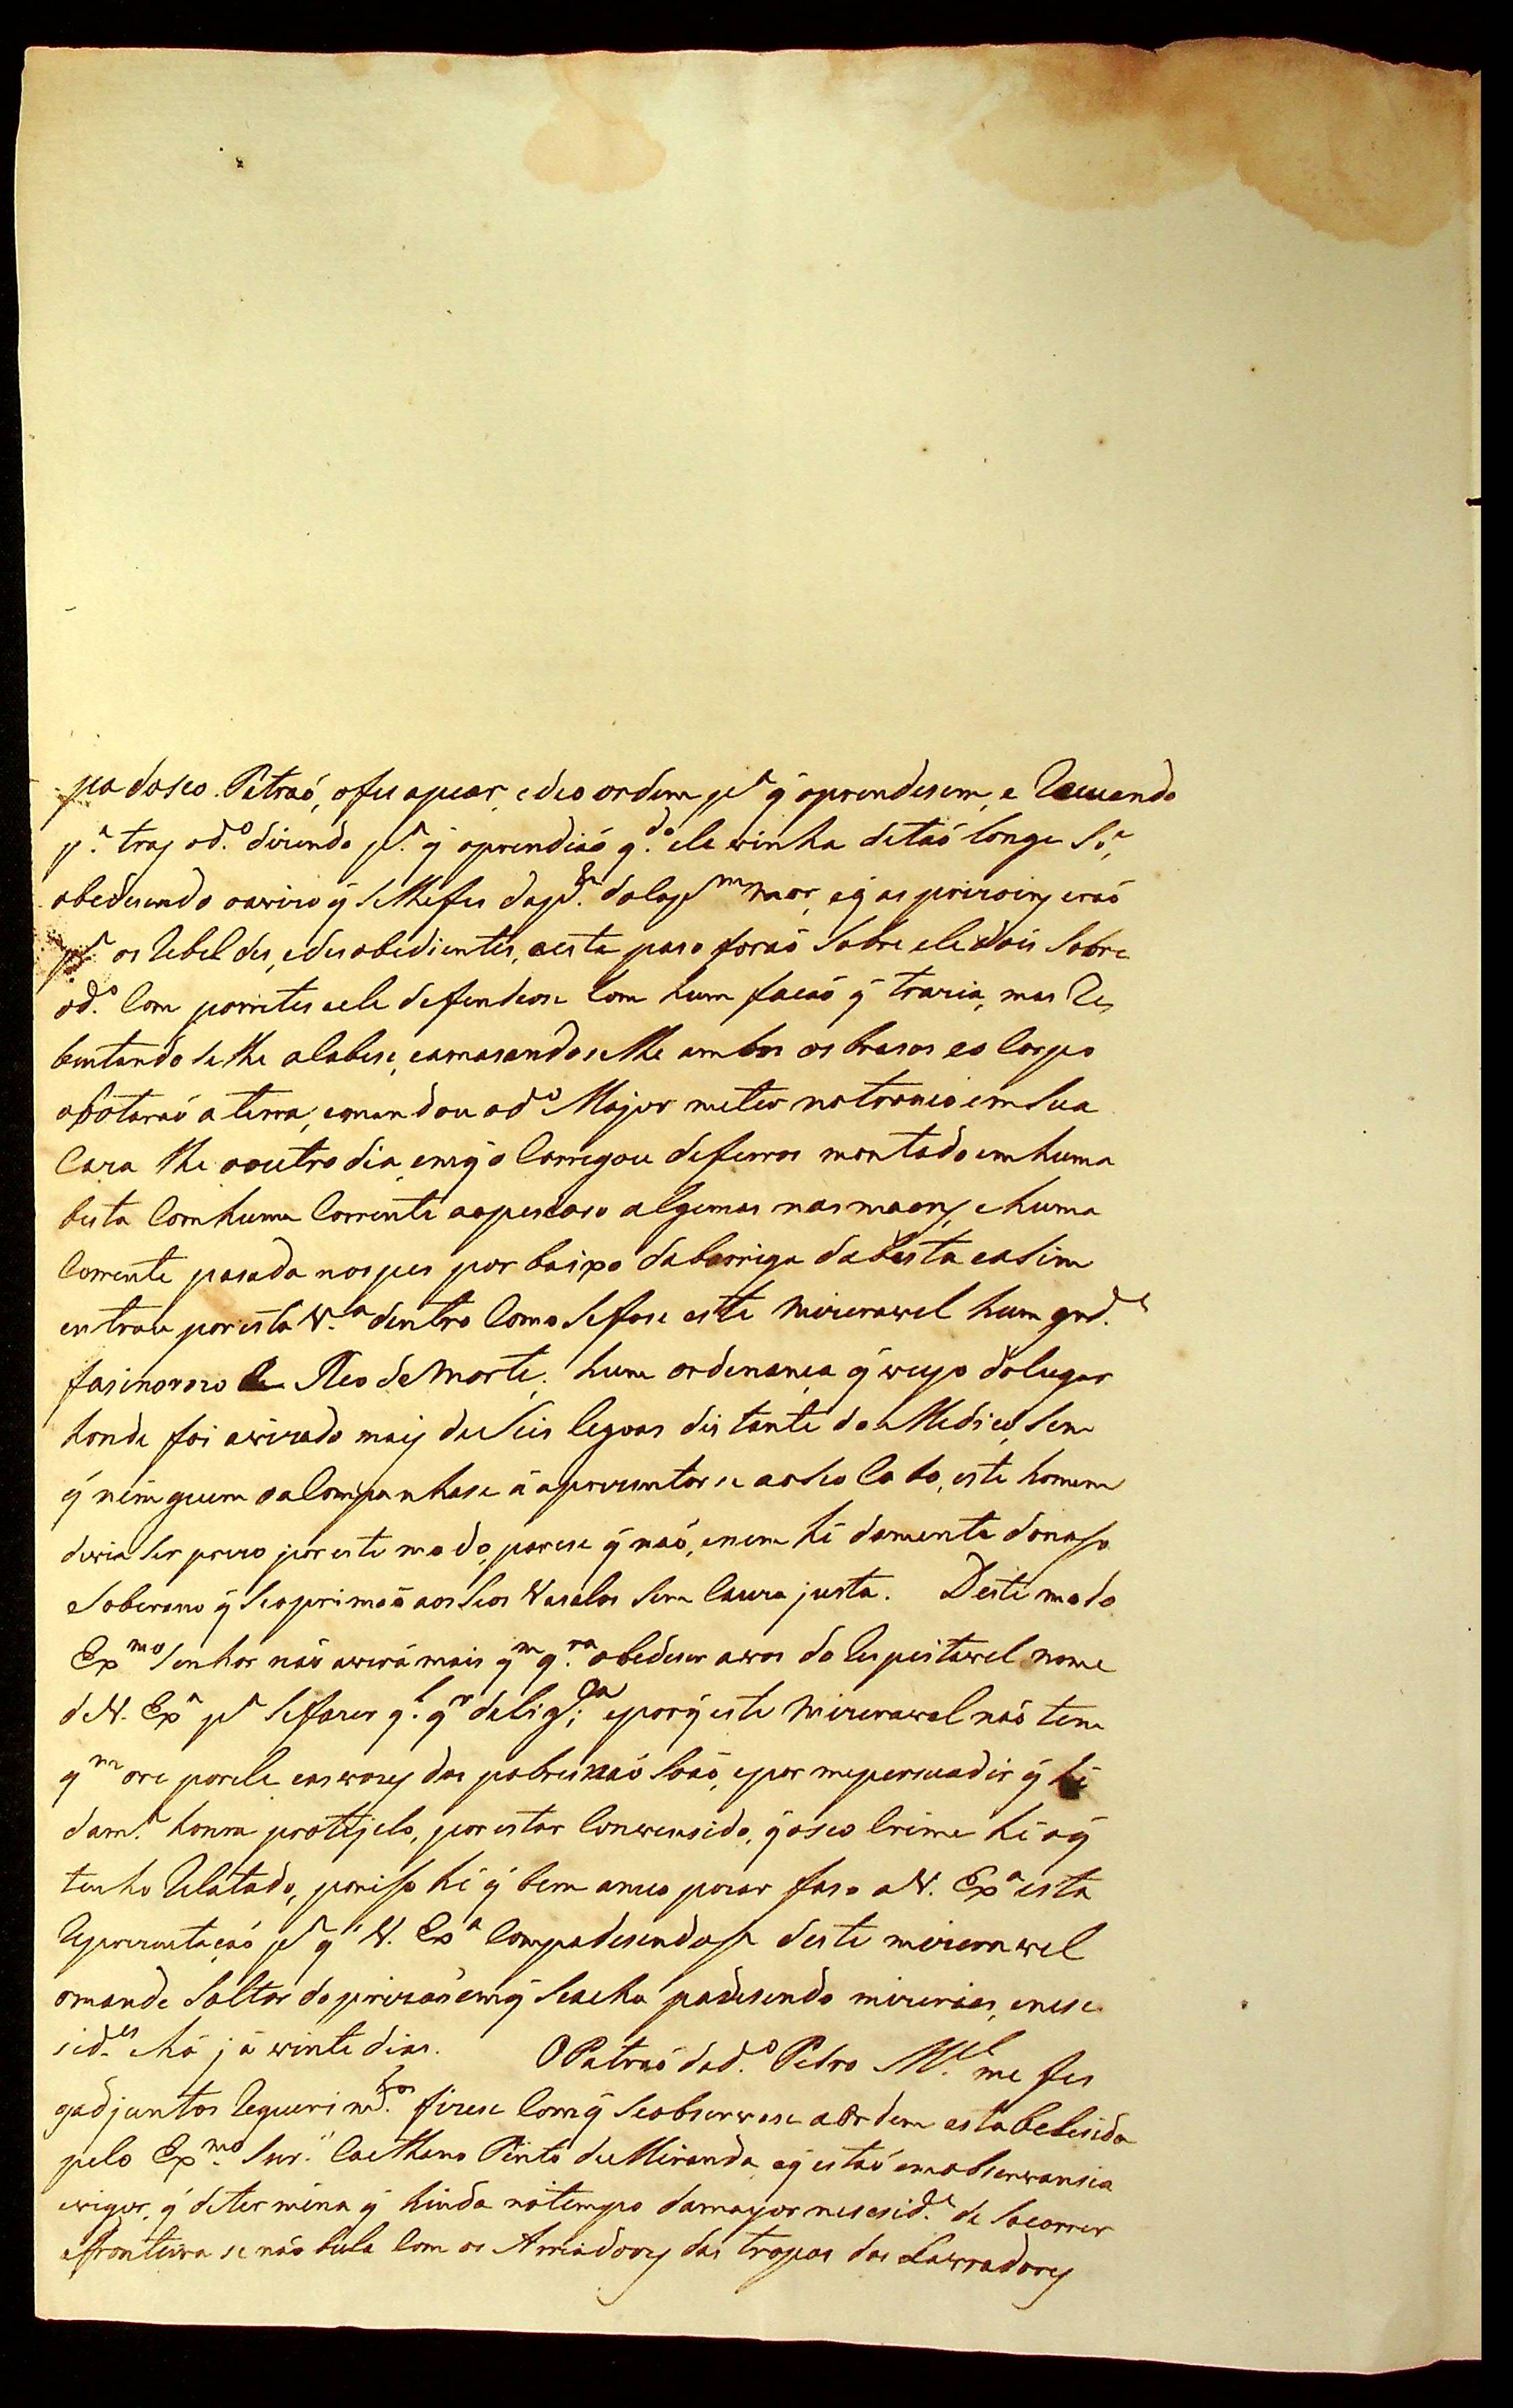 pa do seo Patraó, ofes apear, e deo ordem pª q̃ oprendesem, e Recuando
pª traz od.º dizendo pª q̃ oprendiaó q.do ele vinha detaó longe Só,
obedesendo oavizo q̃ selhefes dap.te do Cap.m mor, eq̃ as prizoins eraó
pª os Rebeldes, edesobedientes, aesta paso foraó Sobre ele dois Sobre
od.º Com porretes eele defendeose Com hum facaó q̃ trazia, mas Res
bentandoselhe aCabesa, eamasandoselhe ambos os brasos eo Corpo
obotaraó aterra, eomandou od.º Major meter no tronco emSua
Caza the ooutro dia, emq̃ o Carregou deferros montado em huma
besta Com huma Corrente aopescoso algemas nas maons, e huma
Corrente pasada nos pes por baixo dabarriga dabesta easim
entrou por esta V.ª dentro Como Sefose este mizeravel hum grd.e
fasinorozo Reo de Morte; huma ordenança q̃ veyo dolugar
honde foi avizado mais de Seis legoas distante do Medico, Sem
q̃ ninguem oaCompanhase á aprezentarse aoSeo Cabo, este homem
devia Ser prezo por este modo, parese q̃ naó, enem hé damente donoso
Soberano q̃ Seoprimaó aos Seos Vasalos Sem Cauza justa. Deste modo
Ex.mo Senhor naó averá mais q.m q.ra obedeser avos do Respeitavel nome
de V. Exª pª Sefazer q.l q.r delig.ca; eporq̃ este Mizeravel naó tem
q.m ore porele, eas vozes dos pobres naó Soaó, epor mepersuadir q̃ hé
dam.ª honra protejelo, por estar Convensido, q̃ oseo Crime hé oq̃
tenho Relatado, poriso hé q̃ bem ameo pezar faso a V. Exª esta
Reprezentaçaó pª q̃ V. Exª Compadesendose deste mizeravel
omande Soltar daprizaó emq̃ Seacha padesendo mizerias, enese
sid.es há já vinte dias. OPatraó dod.º Pedro M.el me fes
os adjuntos Requerim.tos fizese Comq̃ Seobservase aOrdem estabelesida
pelo Ex.mo Snr. Caethano Pinto de Miranda, eq̃ estaó emobservansia
evigor, q̃ determina q̃ hinda notempo damayor nesesid.e de Socorrer
afronteira se naó bula Com os Arriadores das tropas dos Lavradores